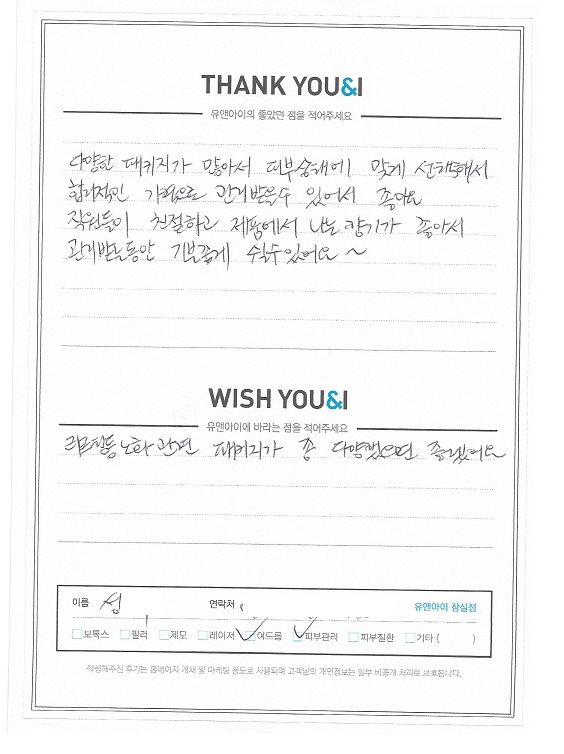 THANK YOU&I
유앤아이의 좋았던 점을 적어주세요
다양한 패키지가 많아서 피부상태에 맞게 선택해서
합리적인 가격으로 관리받을수 있어서 좋아요
직원들이 친절하고 제품에서 나는 향기가 좋아서
관리받는동안 기분좋게 쉴수있어요~
WISH YOU&I
유앤아이에 바라는 점을 적어주세요
리프팅등 노화 관련 패키지가 좀 다양했으면 좋겠어요
이름 성 연락처 유앤아이 잠실점
보톡스 필러 제모 레이저 여드름 피부관리 피부질환 기타 ( )
작성해주신 후기는 홈페이지 게재 및 마케팅 용도로 사용되며 고객님의 개인정보는 일부 비공개 처리로 보호됩니다.